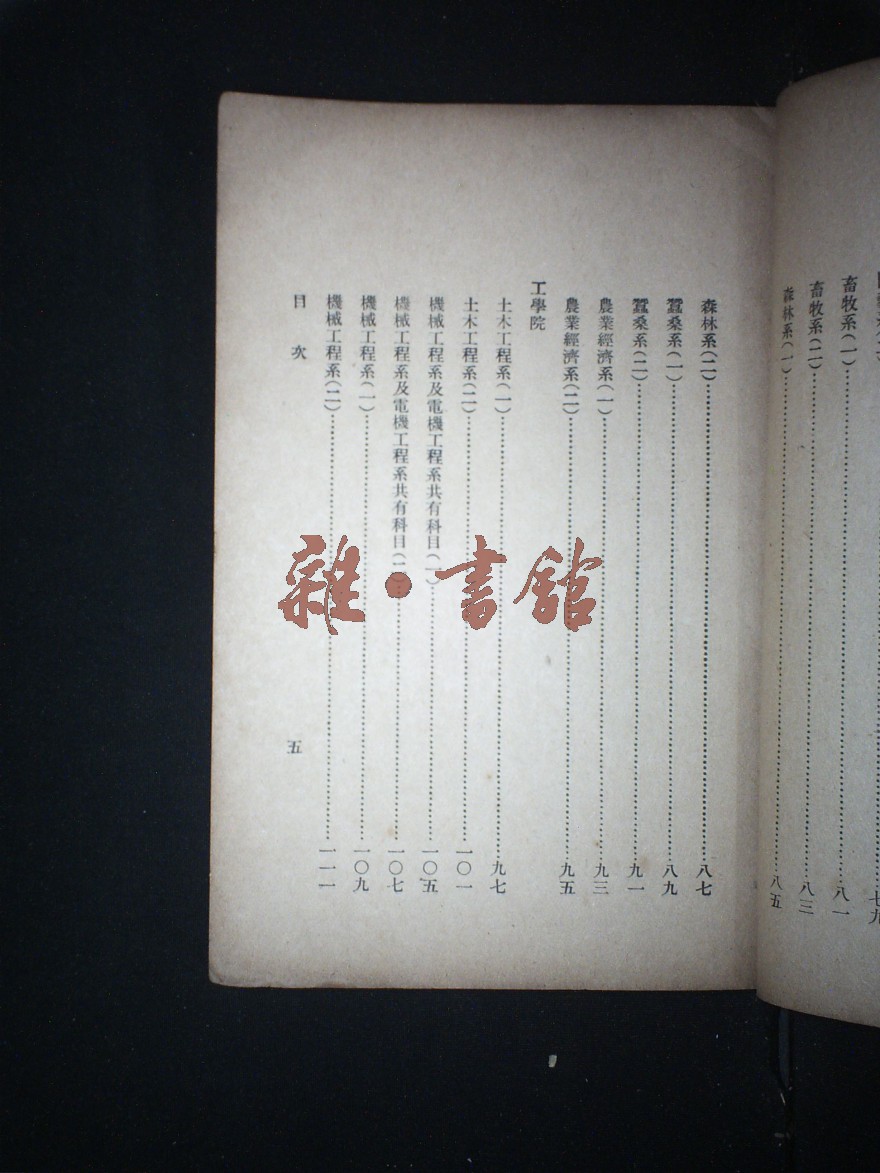 畜牧系(一)……八一
畜牧系(二)……八三
森林系(一)……八五
森林系(二)……八七
蠶桑系(一)……八九
蠶桑系(二)……九一
農業經濟系(一)……九三
農業經濟系(二)……九五
工學院
土木工程系(一)……九七
土木工程系(二)……一〇一
機械工程系及電機工程系共有科目(一)……一〇五
機械工程系及電機工程系共有科目(二)……一〇七
機械工程系(一)……一〇九
機械工程系(二)……一一一
目次
五
雜·書館